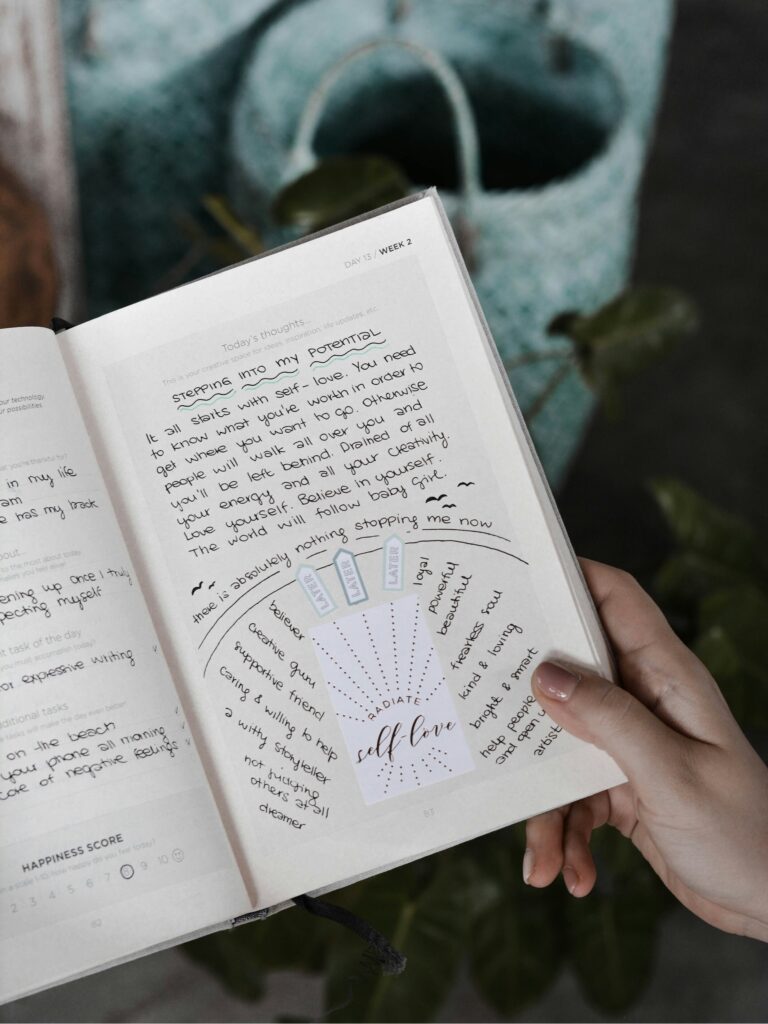 our technology
our possibilities.
what you're thankful for?
in my life
am
e has my back
about...
to the most about today
makes you feel alive!
ening up once I truly
pecting myself
t task of the day
you must accomplish today?
or expressive writing
ditional tasks
tasks will make the day even better!
on the beach
your phone all morning
care of negative feelings
HAPPINESS SCORE
n a scale 1-10, how do you feel today?
2 3 4 5 6 7 8 9 10
82
DAY 13 / WEEK 2
Today's thoughts...
This is your creative space for ideas, inspiration, life updates, etc.
STEPPING INTO MY POTENTIAL
It all starts with self-love. You need
to know what you're worth in order to
get where you want to go. Otherwise
people will walk all over you and
you'll be left behind. Drained of all
your energy and all your creativity.
Love yourself. Believe in yourself.
The world will follow baby girl.
there is absolutely nothing stopping me now
LATER
LATER
LATER
believer
creative guru
supportive friend
caring & willing to help
a witty storyteller
not judging
others at all
dreamer
RADIATE
self-love
loyal
powerful
beautiful
fearless soul
kind & loving
bright & smart
help people
and open
artist
83